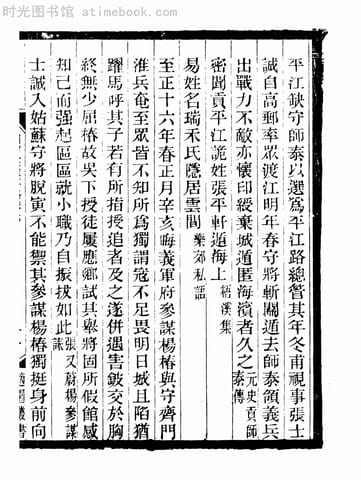 时光图书馆 atimebook.com
平江缺守師泰以選爲平江路總管其年冬甫視事張士
誠自高郵率眾渡江明年春守將斬關遁去師泰領義兵
出戰力不敵亦懷印綬棄城遁匿海濱者久之元史貢師
泰傳
密聞貢平江詭姓張平軒遁海上梧溪集
易姓名端禾氏隱居雲間樂郊私語
至正十六年春正月辛亥晦義軍府參謀楊椿與守齊門
淮兵奄至眾皆不知所爲獨謂寇不足畏明日城且陷猶
躍馬呼其子若有所指授追者及之遂併遇害鈹交於胸
終無少屈椿故吳下授徒屢應鄉試其舉將固所假館感
知己而强起區區就小職乃自振拔如此張又蔚楊參謀
誄
士誠入姑蘇守將脫寅不能禦其參謀楊椿獨挺身前向